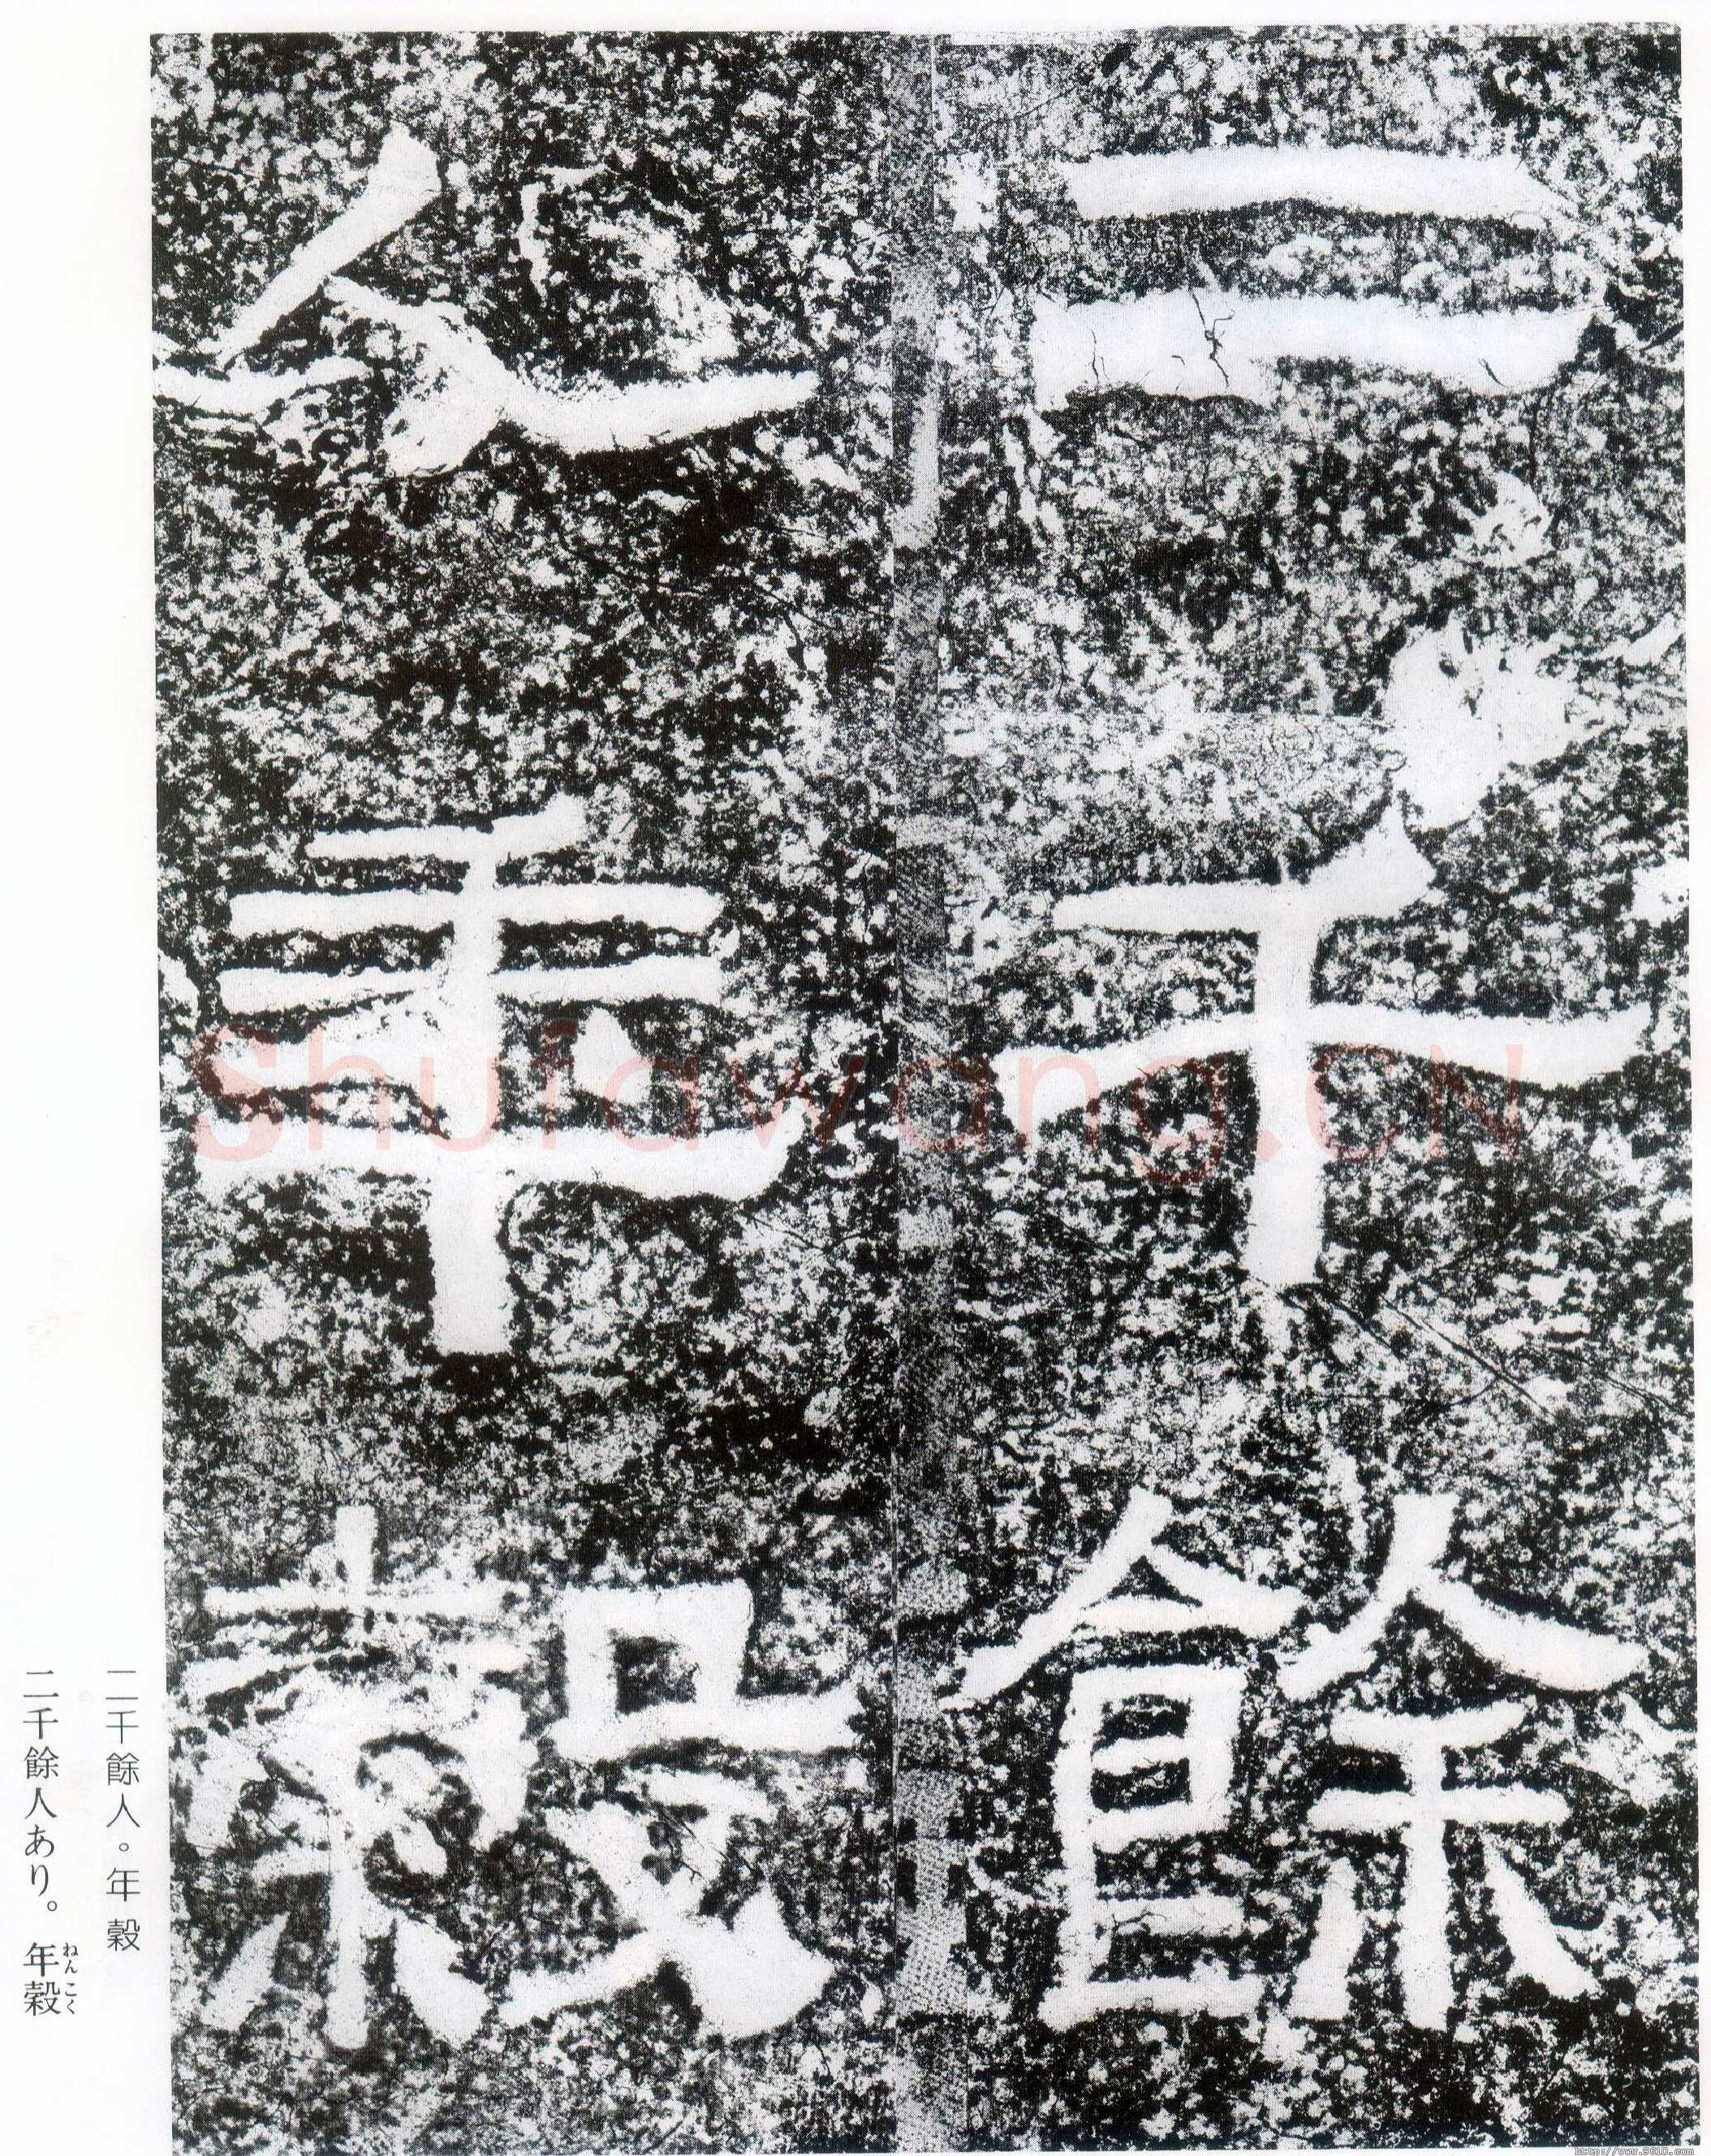 二千餘
人年穀
二千餘人。年穀
二千餘人あり。年穀
ねんこく
Shufawang.CN
http://www.9610.com